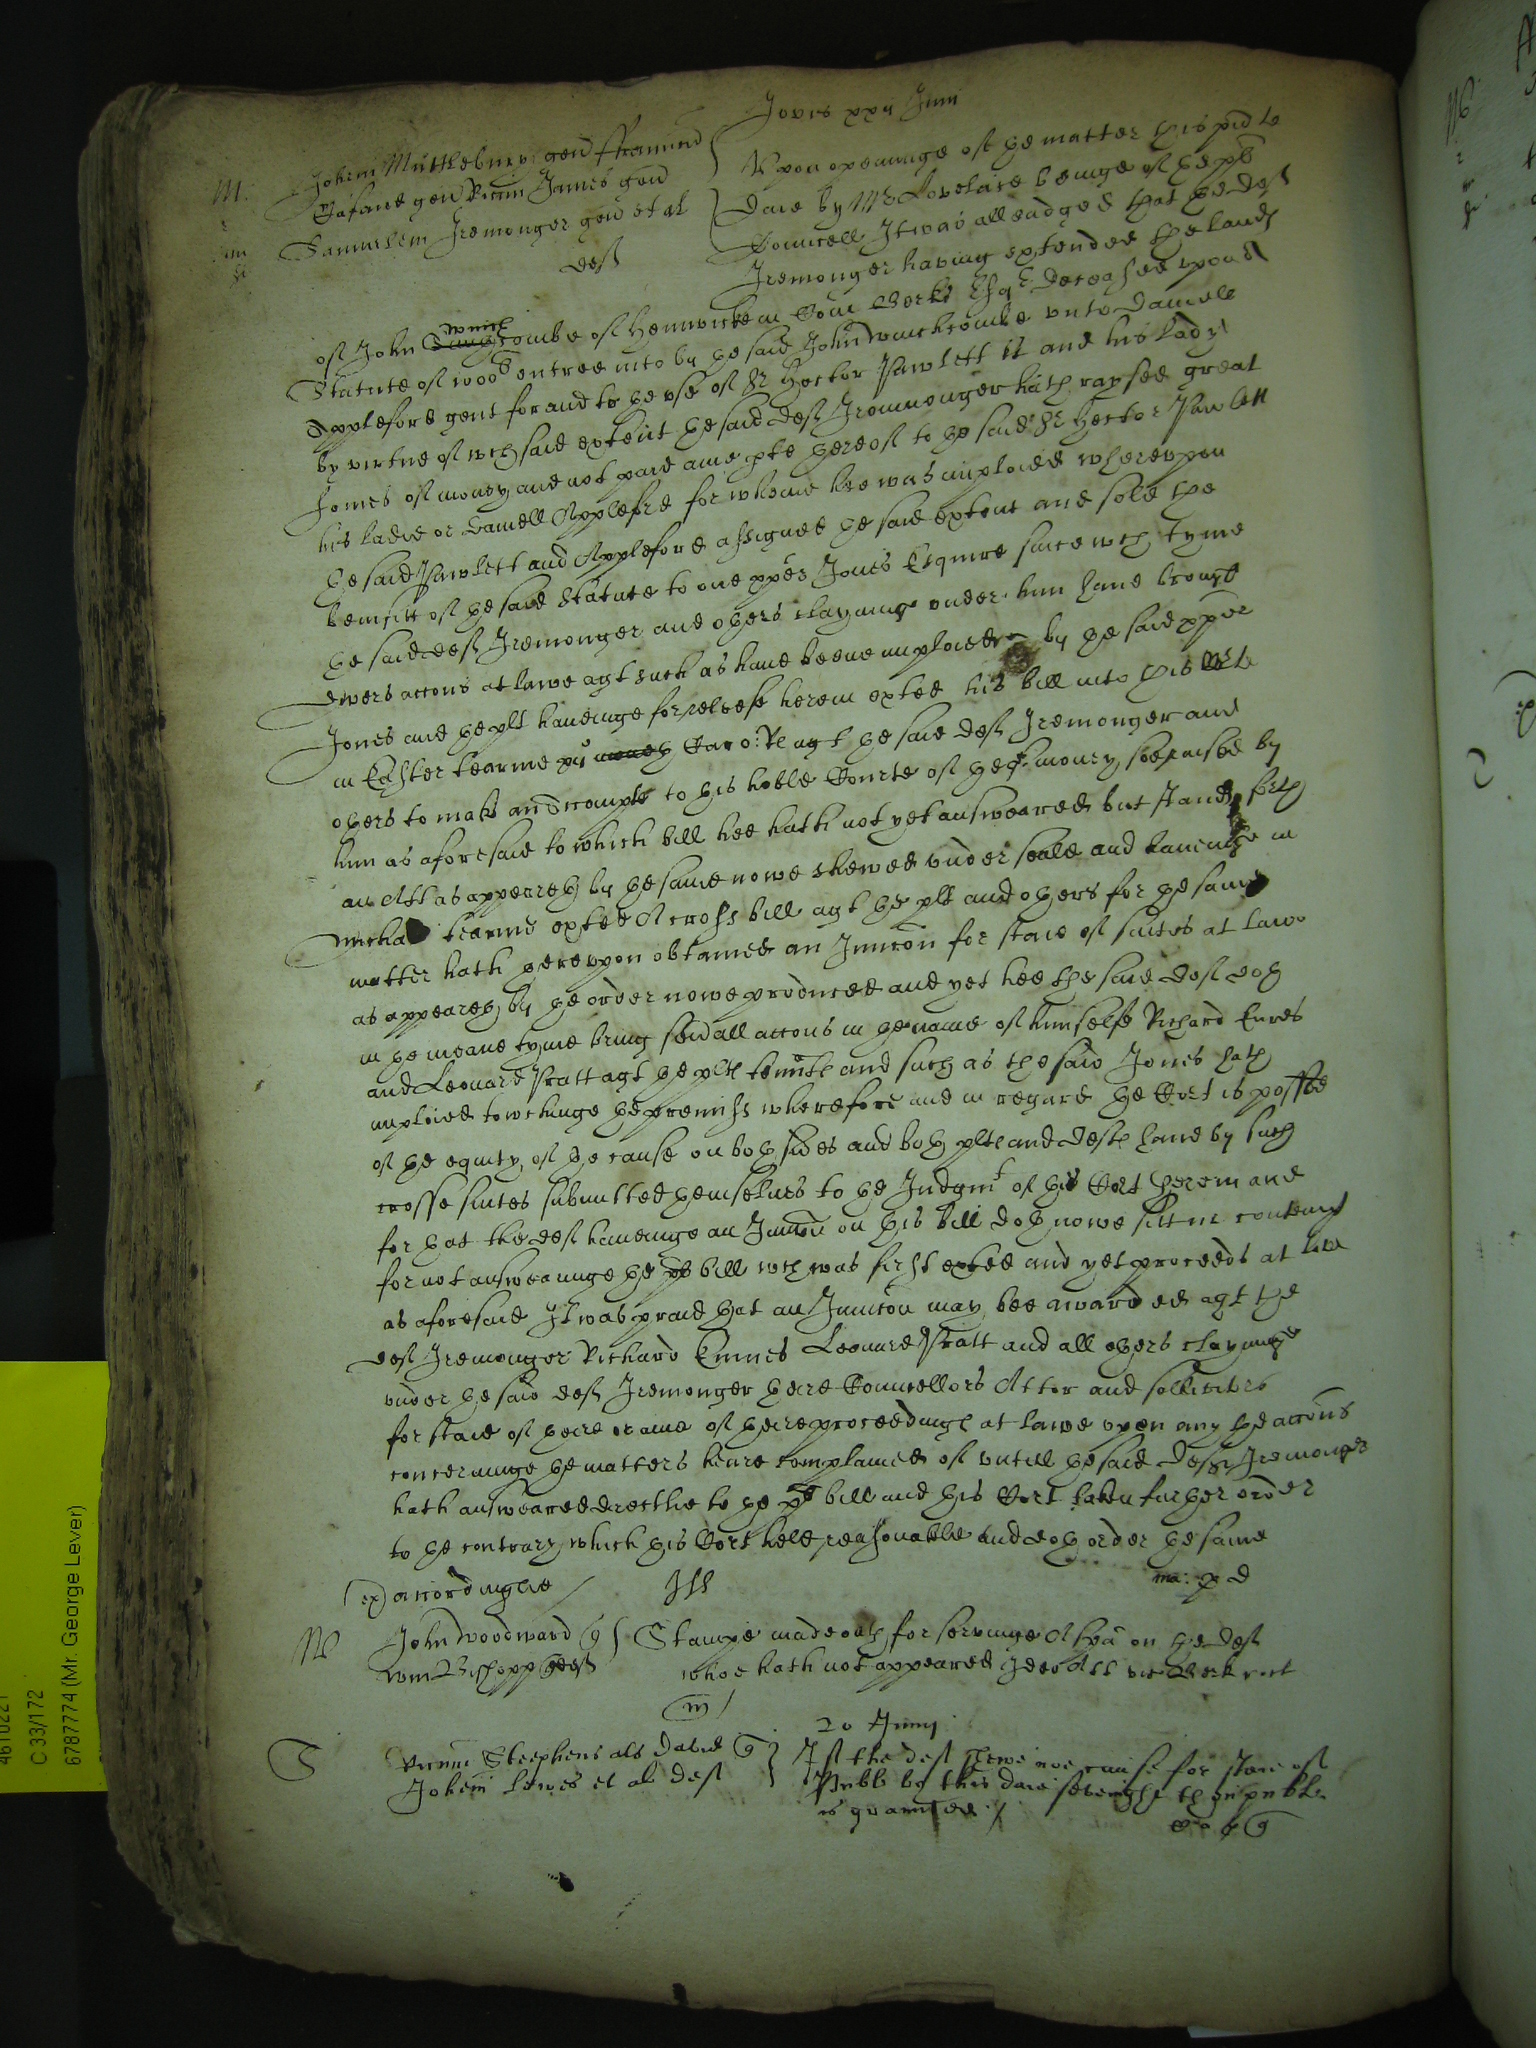 Jovis xxii Junii
M. Johem Muttlebury gen ffrancend
gen Ricum James gen
Samuelem Iremonger gen et al
def
Upon openinge of the matter this pnt
Daie by Mr Lovelace beinge of the plts
Councell It was alleadged that the def
Iremonger having extended the lands
of John winchcombe of Henwicke in Com Berks Esqr deceased upon a
Statute of 1000l entred into by the said John winchcombe unto Daniell
Appleford gent for and to the use of Sr Hector Pawlett kt and his lady
by virtue of wch said extent the said def Iremonger hath raysed great
somes of money and not paid anie pte thereof to the said Sr Hector Pawlett
his ladie or Daniell Applefrd for whome hee was imploied whereupon
the said Pawlett and Appleford assigned the said extent and sold the
benifitt of the said Statute to one Jones Esquire since wch tyme
the said def Iremonger and others clayminge under him have brought
divers accons at lawe agt such as have beene imploied by the said
Jones and the plt haveinge for releefe herein exhted his bill into this
in Easter tearme Caro: Re agt the said def Iremonger and
others to make an accompte to this hoble Courte of the money soe raised by
him as aforesaid to which bill hee hath not yet answeared but stands forth
an Att as appeareth by the same nowe shewed under seale and haveinge in
Micha tearme exhted A cross bill agt the plt and others for the same
matter hath thereupon obtained an Iniuncon for staie of suites at lawe
as appeareth by the order nowe produced and yet hee the said def doth
in the meane tyme bring severall accons in the name of himselfe Richard Ennes
and Leonard Pratt agt the plts tennts and such as the said Jones hath
imploied towchinge the premiss wherefore and in regard the Cort is possed
of the equity of the cause on both sides and both plts and defts have by such
crosse suites submitted themselves to the Judgmt of this Cort herein and
for that the def haveinge an Iniuncon on his bill doth nowe sitt in contempt
for not answearinge the plts bill wch was first exhted and yet proceeds at law
as aforesaid It was praid that an Iniuncon may bee awarded agt the
def Iremonger Richard Ennes Leonard Pratt and all others clayminge
under the said def Iremonger theire Councellors Attor and sollicitors
for staie of theire or anie of theire proceedings at lawe upon any the accons
concerninge the matters heire complained of untill the said def Iremonger
hath answeared directlie to the plts bill and this Cort taken further order
to the contrary which this Cort held reasonable and doth order the same
(ex) accordinglie
ma: p d
M John Woodward q
wm Bishopp def
made oath for servinge A spa on the def
whoe hath not appeared Ideo Att vic Berk rect
m
20 Junij
S Ricum Steephens als David q
Johem Lewes et al def
If the def shewe noe cause for staie of
Publ by this daie sevenight then publ
is graunted